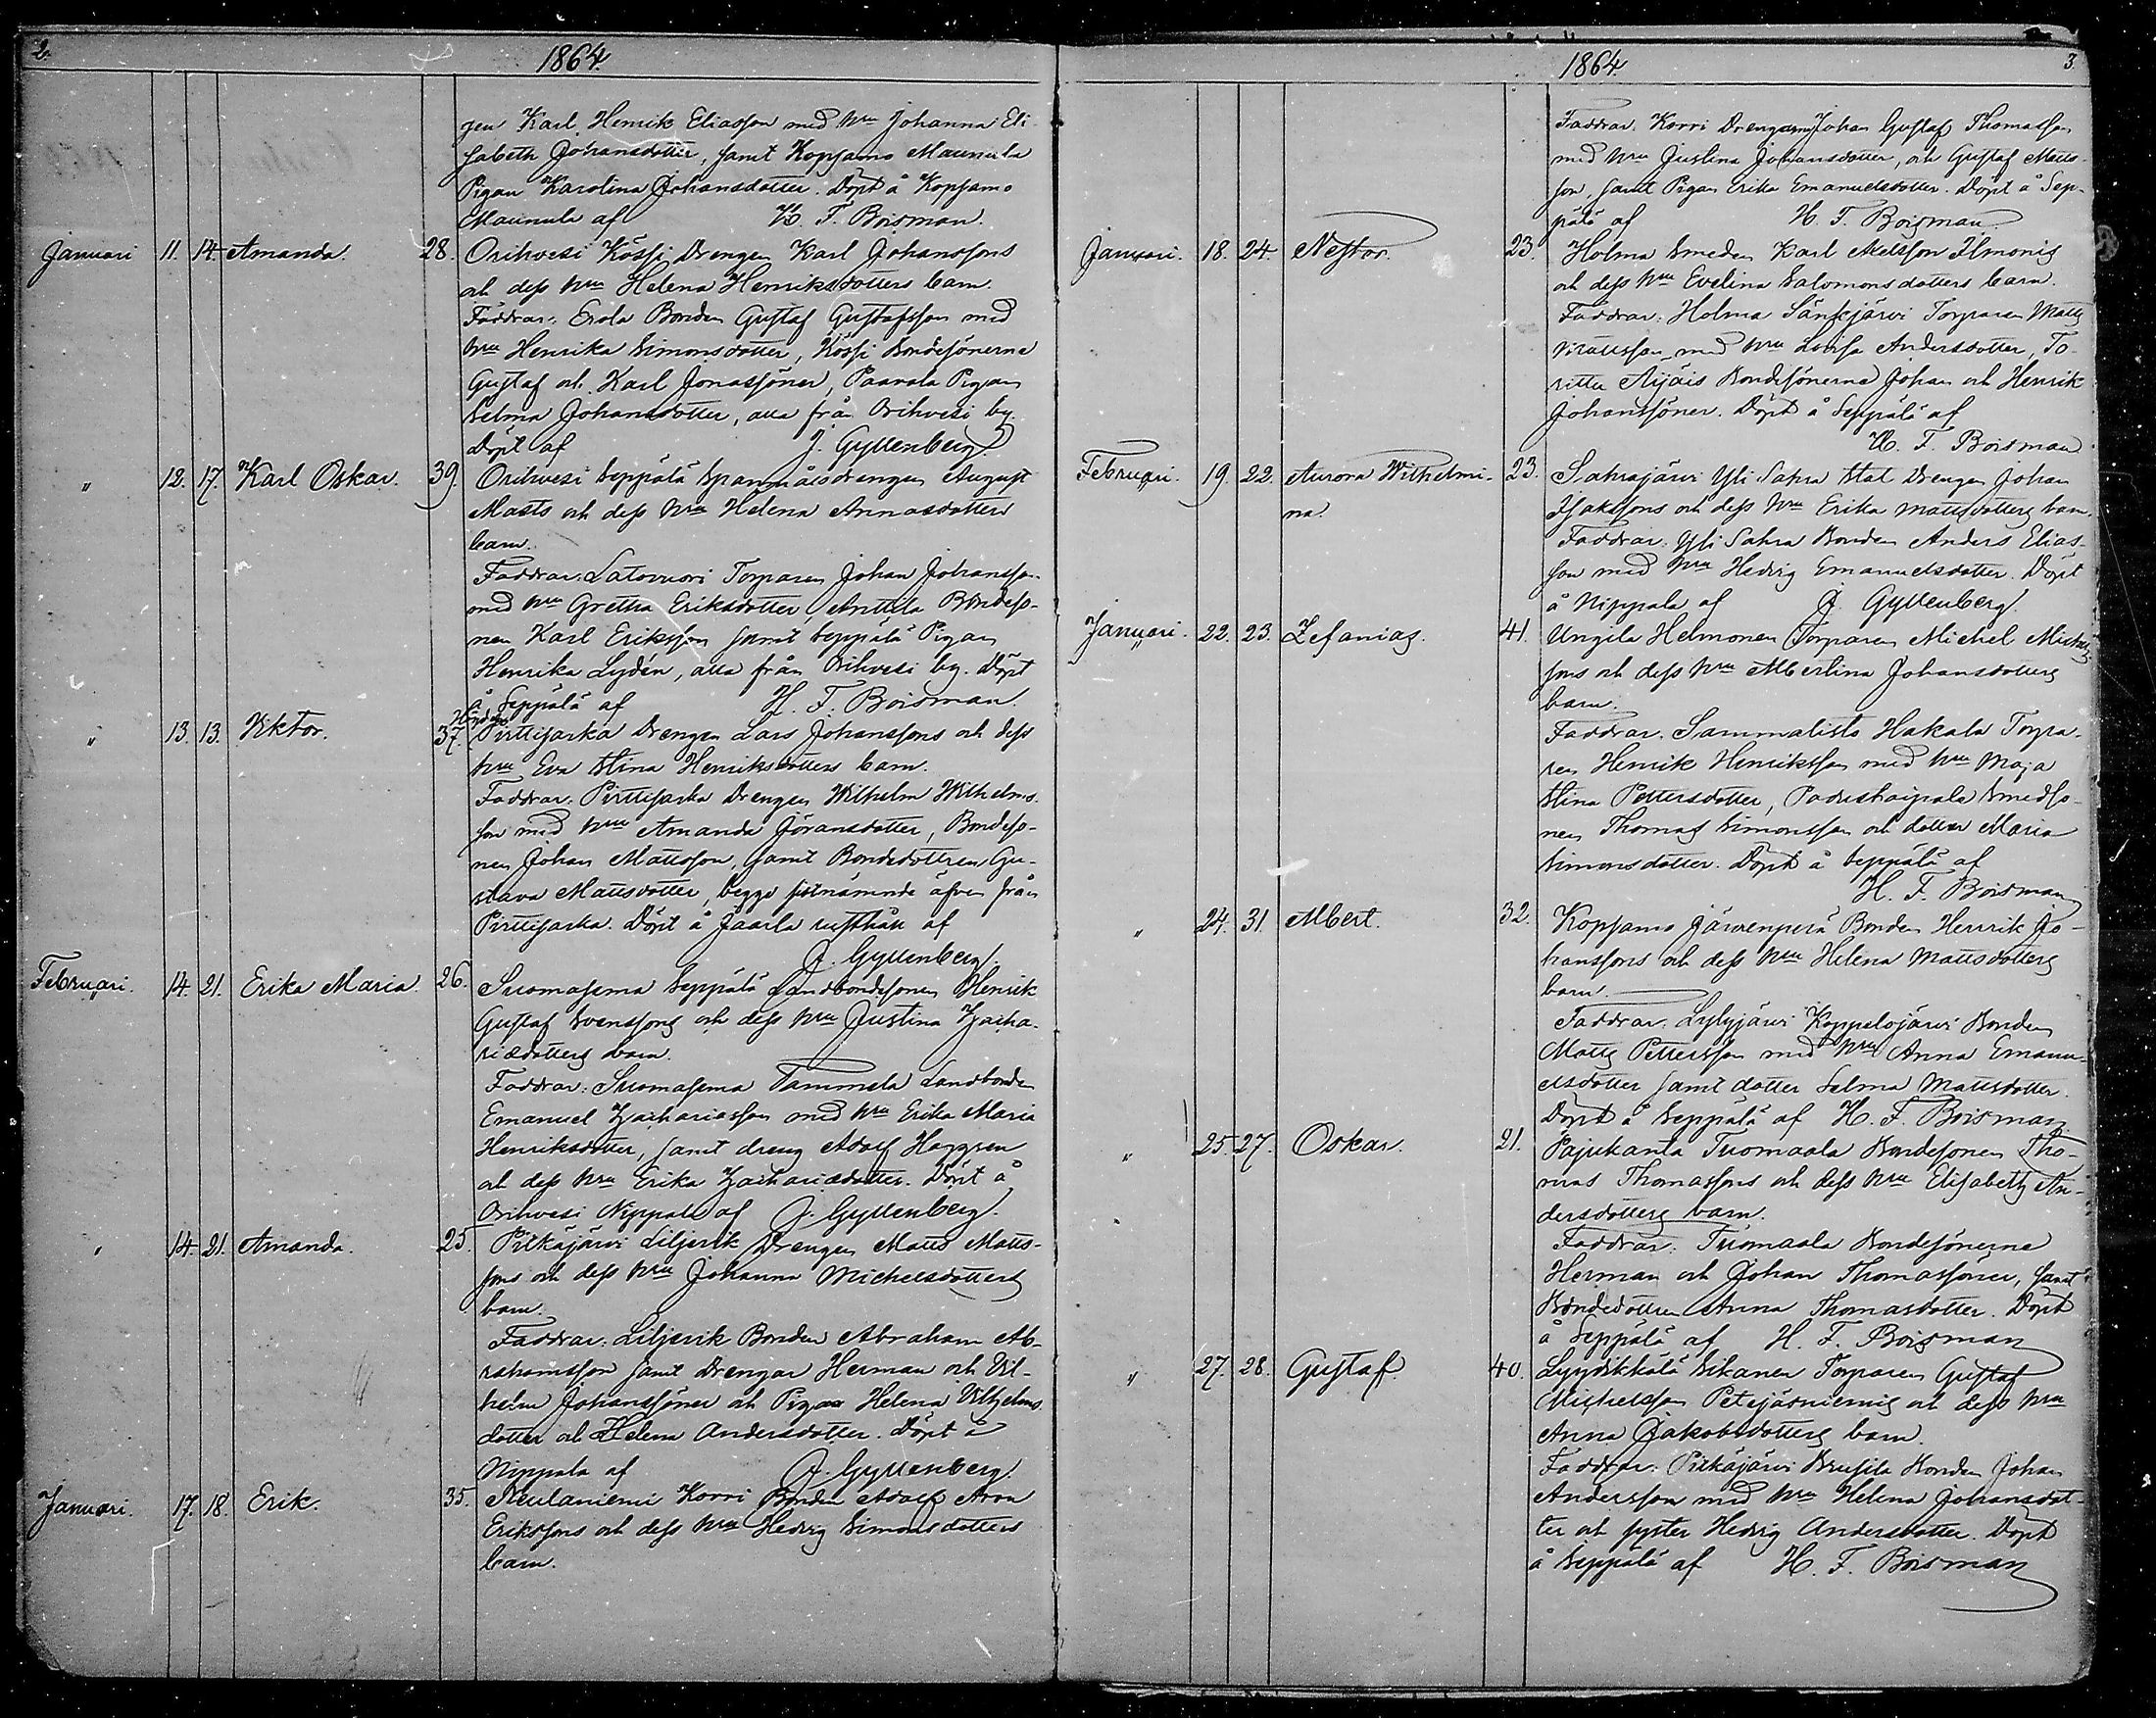 2.
1864.
gen Karl Henrik Eliasson med hru Johanna Eli-
sabeth Johansdotter, samt Kopsamo Maunula
Pigan Karolina Johansdotter. Döpt å Kopsamo
Maunula af H. F. Boisman.
Januari 11. 14. Amanda. 28. Orihvesi Kössi Drengen Karl Johanssons
och dess hru Helena Henriksdotters barn.
Faddrar: Erola Bonden Gustaf Gustafsson med
hru Henrika Simonsdotter, Kössi Bondesönerne
Gustaf och Karl Jonassöner, Paavola Pigan
Selma Johansdotter, alla från Orihvesi by.
Döpt af J. Gyllenberg
" 12. 17. Karl Oskar. 39. Orihvesi Seppälä Spannmålsdrengen August
Masts och dess hru Helena Annasdotters
barn.
Faddrar: Latovuori Torparen Johan Johansson
med hru Gretha Eriksdotter, Anttila Bondeso-
nen Karl Eriksson samt Seppälä Pigan
Henrika Lydén, alla från Orihvesi by. Döpt
å Seppälä af H. F. Boisman.
" 13. 13. Viktor. 37. Pirttisarka Drengen Lars Johanssons och dess
hru Eva Stina Henriksdotters barn.
Faddrar: Pirttisarka Drengen Wilhelm Wilhelms-
son med hru Amanda Göransdotter, Bondeso-
nen Johan Mattsson, samt Bondedottren Gu-
stava Mattsdotter, begge sistnämnde äfven från
Pirttisarka. Döpt å Jaarla rusthåll af
J. Gyllenberg.
Februari. 14. 21. Erika Maria. 26. Suomasema Seppälä Landbondesonen Henrik
Gustaf Svenssons och dess hru Justina Zacha-
riædotters barn.
Faddrar: Suomasema Tammela Landbonden
Emanuel Zachariasson med hru Erika Maria
Henriksdotter, samt dreng Adolf Haggren
och dess hru Erika Zachariædotter. Döpt å
Orihvesi Nippala af J. Gyllenberg.
" 14. 21. Amanda. 25. Pitkäjärvi Liljerik Drengen Matts Matts-
sons och dess hru Johanna Michelsdotters
barn.
Faddrar: Liljerik Bonden Abraham Ab-
rahamsson samt Drengar Herman och Vil-
helm Johanssöner och Pigan Helena Vilhelms-
dotter och Helena Andersdotter. Döpt å
Nippala af J. Gyllenberg.
Januari. 17. 18. Erik. 35. Neulaniemi Korri Bonden Adolf Aron
Erikssons och dess hru Hedvig Simonsdotters
barn.
1864.
3.
Faddrar: Korri Drengarne Johan Gustaf Thomasson
med hru Justina Johansdotter, och Gustaf Matts-
son, samt Pigan Erika Emanuelsdotter. Döpt å Sep-
pälä af H. F. Boisman.
Januari. 18. 24. Nestor. 23. Holma Smeden Karl Axelsson Ilmonis
och dess hru Evelina Salomonsdotters barn.
Faddrar: Holma Länsjärvi Torparen Matts
Mattsson med hru Lovisa Andersdotter, To-
ritta Äijäis Bondesönerne Johan och Henrik
Johanssöner. Döpt å Seppälä af
H. F. Boisman
Februari. 19. 22. Aurora Wilhelmi- 23. Sahrajärvi Yli Sahra Stat Drengen Johan
na. Isakssons och dess hru Erika Mattsdotters barn.
Faddrar: Yli Sahra Bonden Anders Elias-
son med hru Hedvig Emanuelsdotter. Döpt
å Nippala af J. Gyllenberg.
Januari. 22. 23. Zefanias. 41. Ungila Helmonen Torparen Michel Michels-
sons och dess hru Albertina Johansdotters
barn.
Faddrar: Sammalisto Hakala Torpa-
ren Henrik Henriksson med hru Maja
Stina Pettersdotter, Padustaipale Smedso-
nen Thomas Simonsson och dotter Maria
Simonsdotter. Döpt å Seppälä af
H. F. Boisman
" 24. 31. Albert. 32. Kopsamo Järvenperä Bonden Henrik Jo-
hanssons och dess hru Helena Mattsdotters
barn.
Faddrar: Lylyjärvi Koppelojärvi Bonden
Matts Pettersson med hru Anna Emanu-
elsdotter samt dotter Selma Mattsdotter.
Döpt å Seppälä af H. F. Boisman.
" 25. 27. Oskar. 21. Pajukanta Tuomaala Bondesonen Tho-
mas Thomassons och dess hru Elisabeth An-
dersdotters barn.
Faddrar: Tuomaala Bondesönerne
Herman och Johan Thomassöner, samt
Bondedottren Anna Thomasdotter. Döpt
å Seppälä af H. F. Boisman
" 27. 28. Gustaf. 40. Lyydikkälä Sikanen Torparen Gustaf
Michelsson Petäjäsniemis och dess hru
Anna Jakobsdotters barn.
Faddrar: Pitkäjärvi Krusila Bonden Johan
Andersson med hru Helena Johansdot-
ter och syster Hedvig Andersdotter. Döpt
å Seppälä af H. F. Boisman